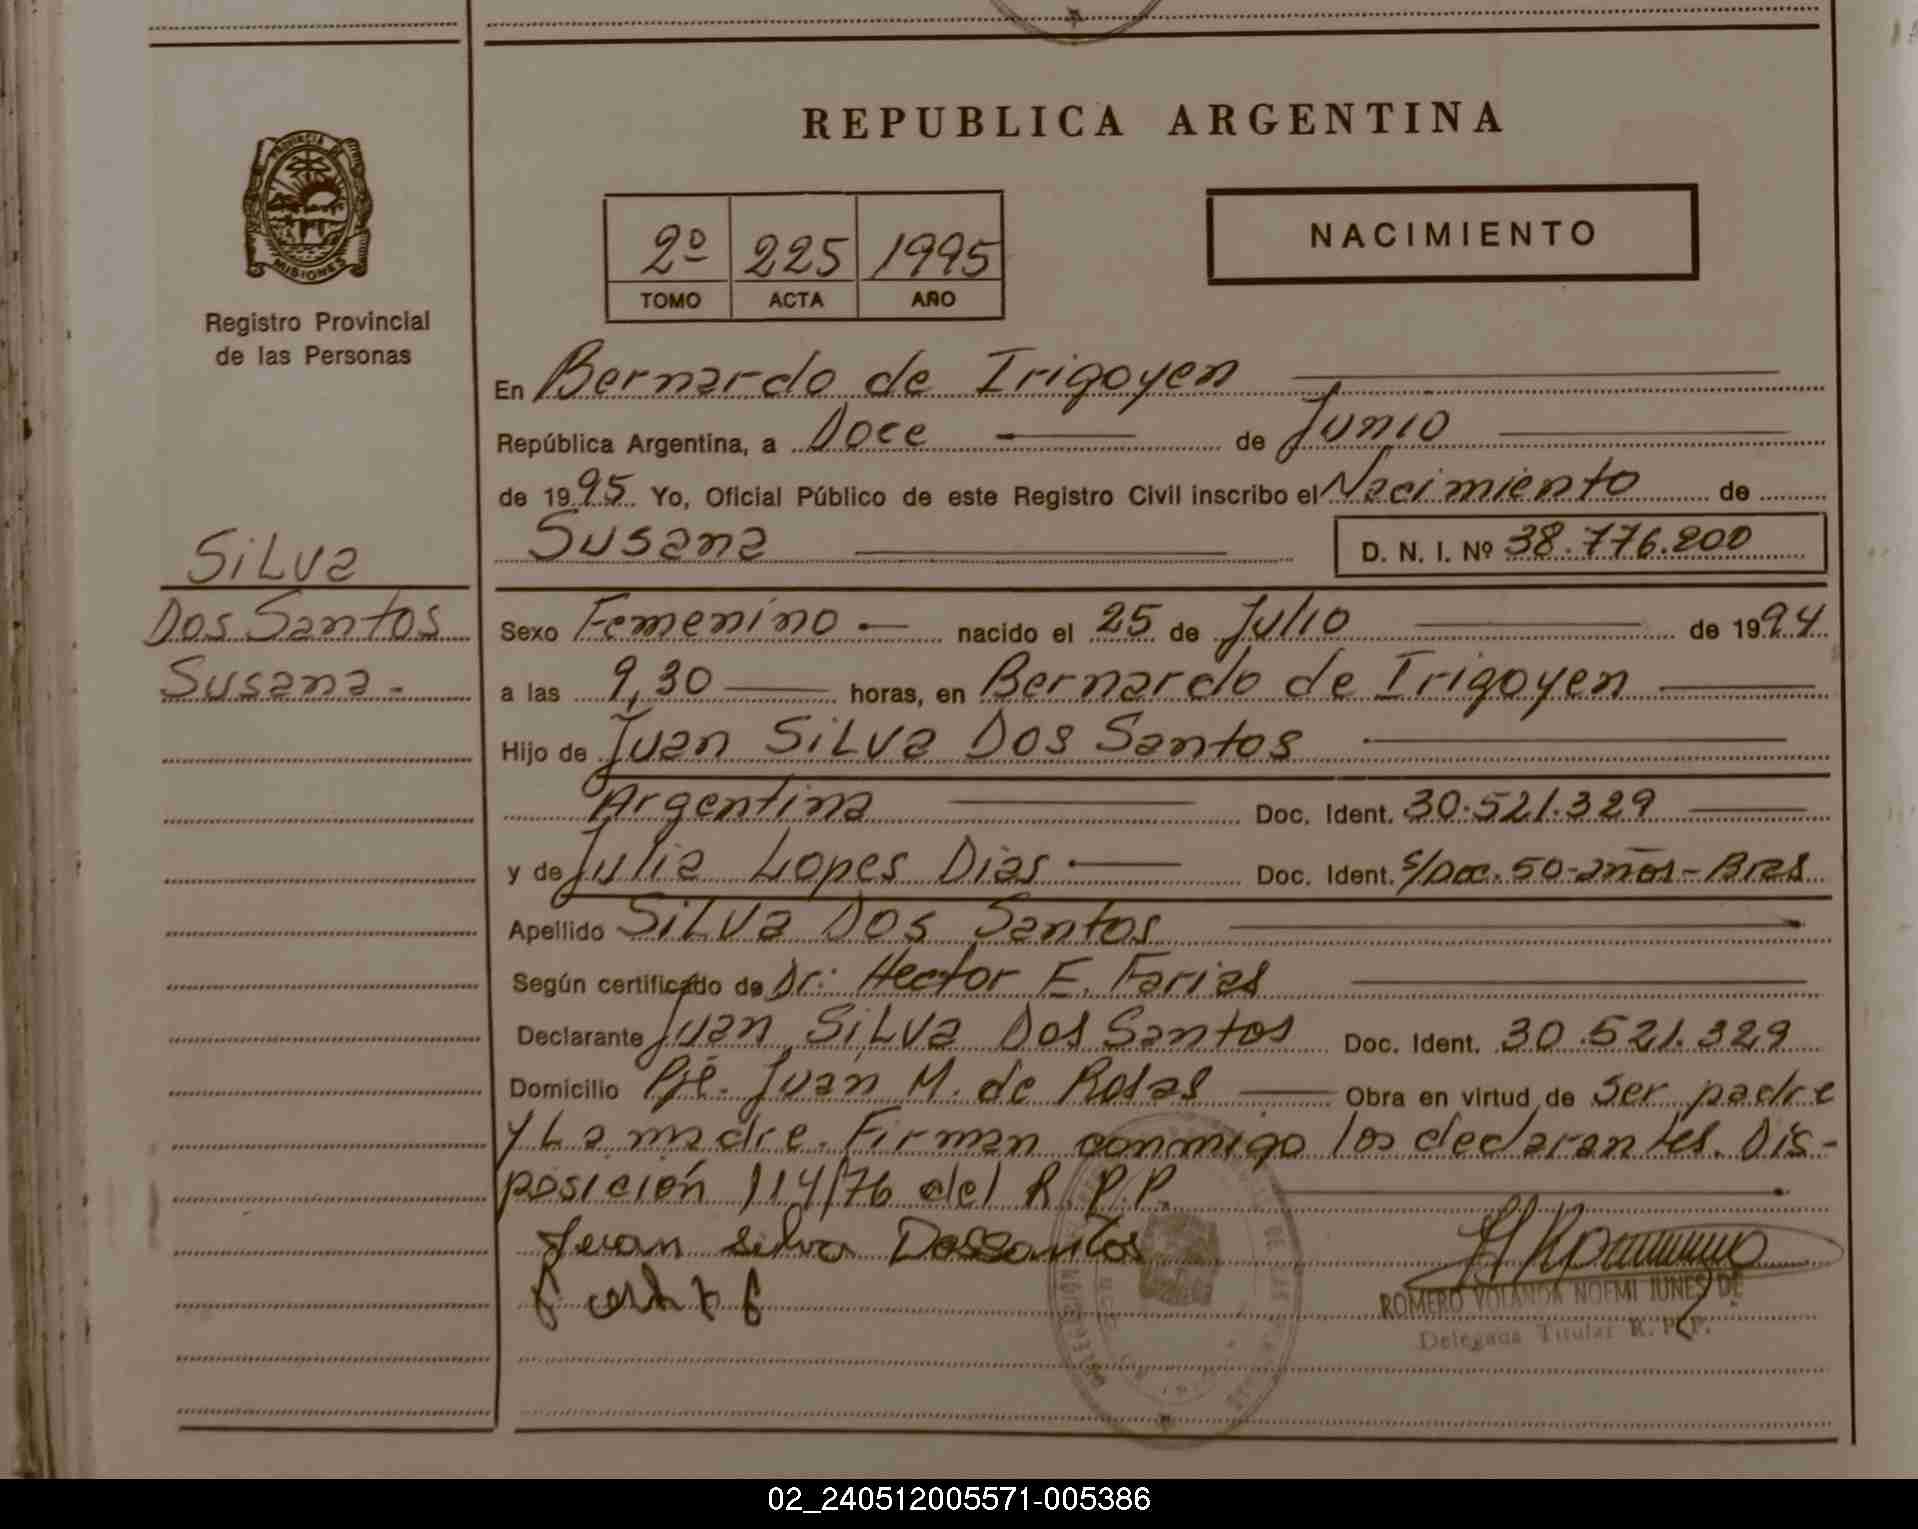 REPUBLICA ARGENTINA
PROVINCIA DE
MISIONES
Registro Provincial
de las Personas
2º 225 1995
TOMO ACTA AÑO
NACIMIENTO
En Bernardo de Irigoyen
República Argentina, a Doce de Junio
de 1995 Yo, Oficial Público de este Registro Civil inscribo el Nacimiento de
Susana D. N. I. Nº 38.776.200
Silva
Dos Santos
Susana.-
Sexo Femenino nacido el 25 de Julio de 1994
a las 9,30 horas, en Bernardo de Irigoyen
Hijo de Juan Silva Dos Santos
Argentina Doc. Ident. 30.521.329
y de Julia Lopes Dias Doc. Ident. s/Doc. 50-años-Bras
Apellido Silva Dos Santos
Según certificado de Dr: Hector E. Farias
Declarante Juan Silva Dos Santos Doc. Ident. 30.521.329
Domicilio Pje. Juan M. de Rosas Obra en virtud de ser padre
y La madre. Firman conmigo los declarantes. Dis-
posición 114/76 del R.P.P.
Juan silva Dossantos
ROMERO YOLANDA NOEMI JUNES DE
Delegada Titular R.P.P.
02_240512005571-005386